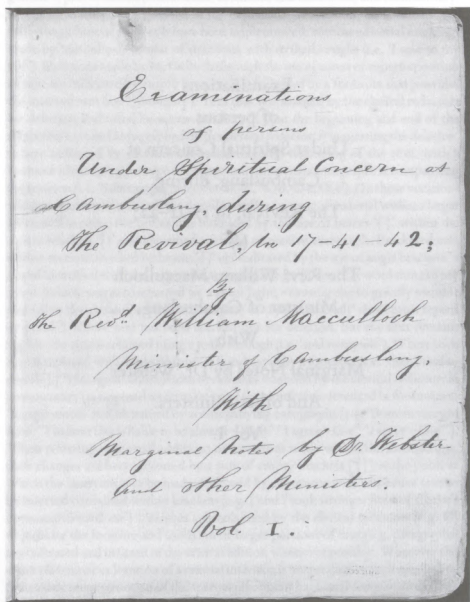 Examinations
of persons
Under Spiritual Concern at
Cambuslang, during
The Revival, in 17-41-42;
By
The Revd. William Macculloch
Minister of Cambuslang,
With
Marginal Notes by Dr. Webster
and other Ministers.
Vol. I.